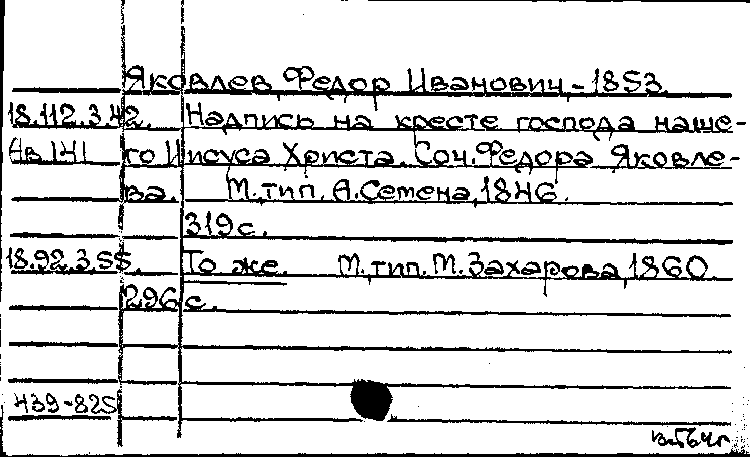 Яковлев, Федор Иванович, - 1853.
18.112.3.42. Надпись на кресте господа наше-
Ав 141 го Иисуса Христа. Соч. Федора Яковле-
ва. М., тип. А. Семена, 1846.
319 с.
18.92.3.55. То же. М., тип. М. Захарова, 1860.
296 с.
439-825